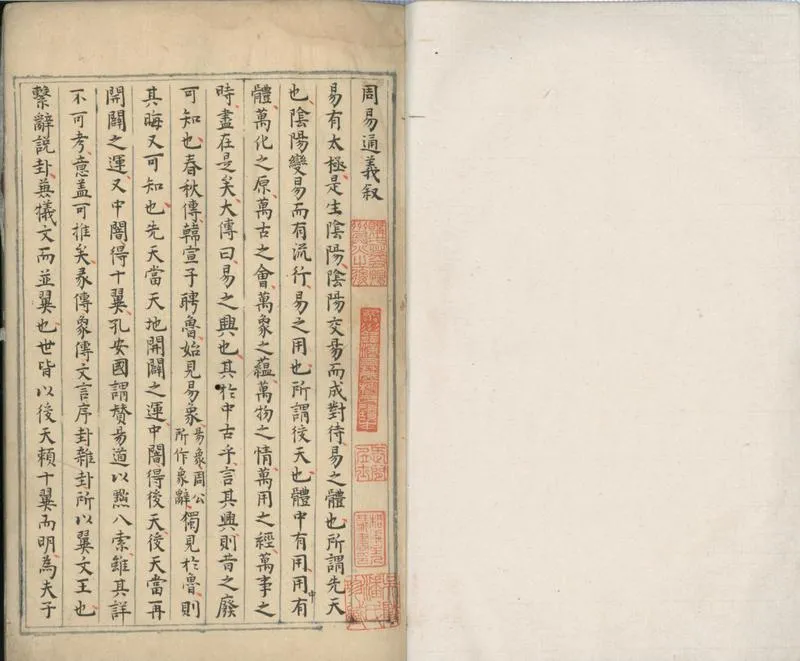 周易通義叙
易有太極是生陰陽陰陽交易而成對待易之體也所謂先天
也陰陽變易而有流行易之用也所謂後天也體中有用用有中
體萬化之原萬古之會萬象之蘊萬物之情萬用之經萬事之
時盡在是矣大傳曰易之興也其於中古乎言其興則昔之廢
可知也春秋傳韓宣子聘魯始見易象易象周公所作象辭獨見於魯則
其晦又可知也先天當天地開闢之運中闇得後天後天當再
開闢之運又中闇得十翼孔安國謂賛易道以黜八索雖其詳
不可考意盖可推矣彖傳象傳文言序卦雜卦所以翼文王也
繫辭說卦兼犧文而並翼也世皆以後天賴十翼而明為夫子